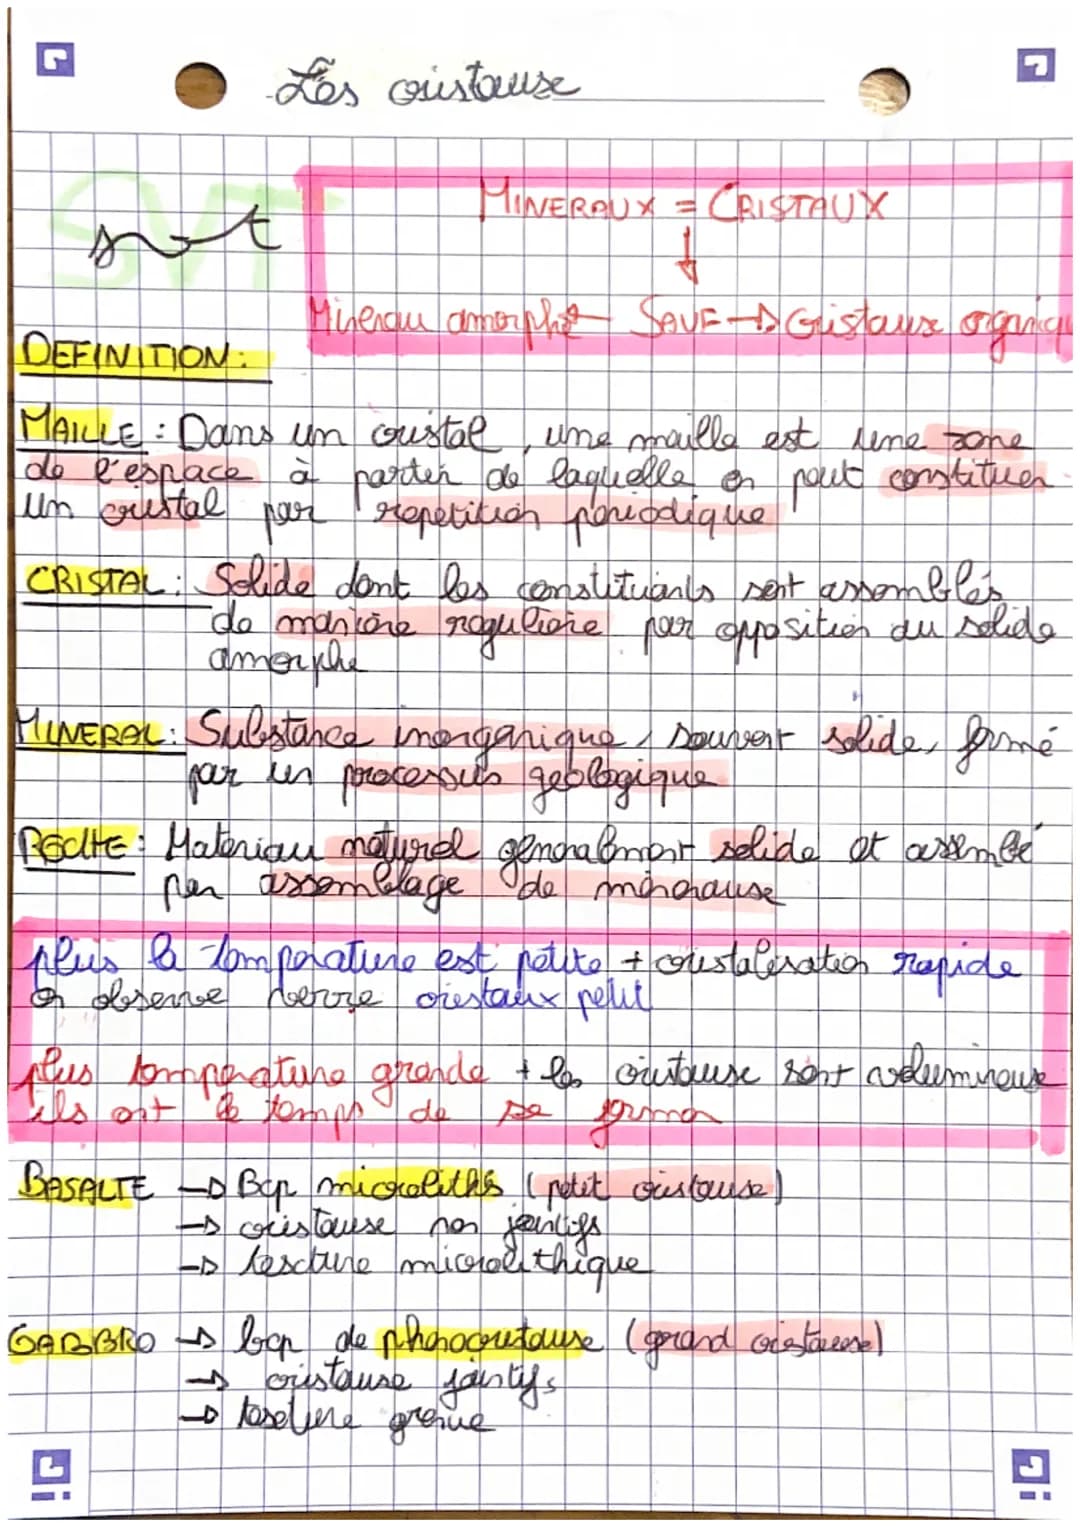 Les cristaux
SVT
svt
MINERAUX = CRISTAUX
↓
Minerau amorphe ← SAUF → Cristaux organiqu
DEFINITION :
MAILLE : Dans un cristal, une maille est une zone
de l'espace à partir de laquelle on peut constituer
un cristal par repetition periodique
CRISTAL : Solide dont les constituants sont assemblés
de manière regulière par opposition du solide
amorphe
MINERAL : Substance inorganique, souvent solide, formé
par un processus geologique
ROCHE : Materiau naturel generalment solide et assemblé
par assemblage de mineraux
plus la temperature est petite + cristalisation rapide
on observe verre cristaux petit
plus temperature grande + les cristaux sont volumineux
ils ont le temps de se former
BASALTE → Bcp microliths (petit cristaux)
→ cristaux non jointifs
→ texture microlithique
GABBRO → bcp de phenocristaux (grand cristaux)
→ cristaux jointifs
→ texture grenue